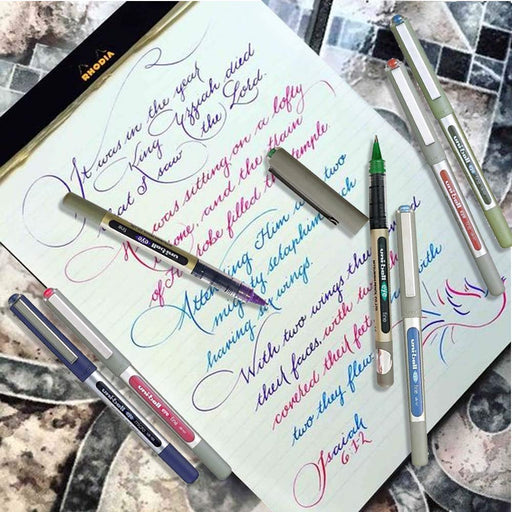 RHODIA
It was in the year
King Uzziah died
that I saw the Lord.
He was sitting on a lofty
throne, and the train
of His robe filled the temple
Attending Him were two
mighty seraphim each
having six wings.
With two wings they
their faces, with two
covered their feet with
two they flew
Isaiah
6:1-2
uni-ball eye fine
uni-ball eye fine
uni-ball eye fine
uni-ball eye fine
uni-ball eye
uni-ball eye
uni-ball eye fine